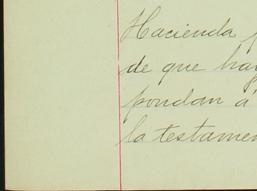 Hacienda p
de que hay
pondan á
la testamen